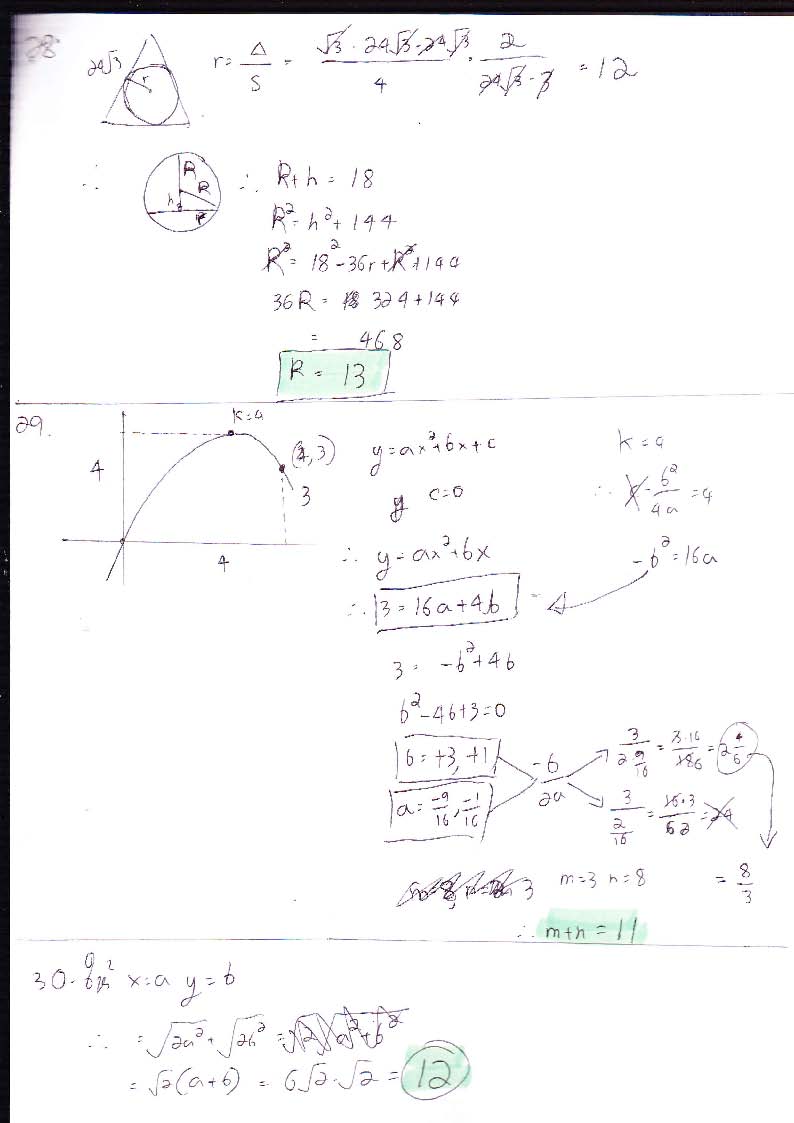 28
24√3
r
r = Δ/S = √3 · 24√3 · 24√3 / 4 · 2 / 24√3 · 3 = 12
∴
R
R
h
r
∴ R+h = 18
R² = h² + 144
R² = 18² - 36r + R² + 144
36R = 324 + 144
= 468
R = 13
29.
k=4
(4, 3)
4
3
4
y = ax² + bx + c
k = 4
y c=0
∴ y = ax² + bx
∴ -b²/4a = 4
-b² = 16a
∴ 3 = 16a + 4b
3 = -b² + 4b
b² - 4b + 3 = 0
b = +3, +1
a = -9/16, -1/16
-b/2a
3/2 9/16 = 3·16/186 = 2 4/6
3/2/16 = 16·3/62 = 24
m=3 n=8
= 8/3
∴ m+n = 11
30. x=a y=b
∴ = √2a² + √2b² = √2 √a²+b²
= √2(a+b) = 6√2·√2 = 12